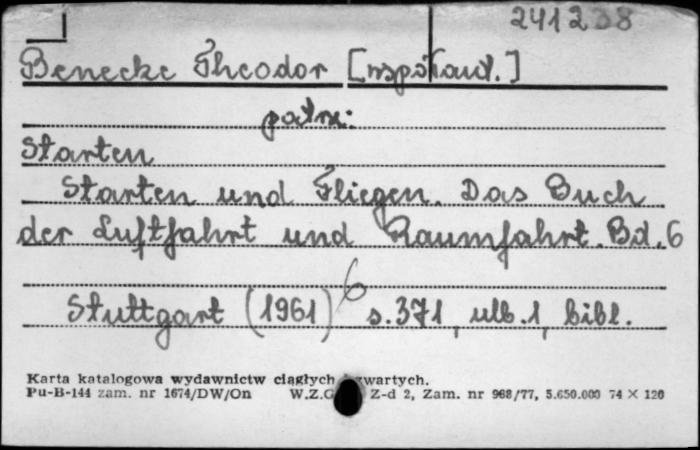 241238
Benecke Theodor [współaut.]
patrz:
Starten
Starten und Fliegen. Das Buch
der Luftfahrt und Raumfahrt. Bd. 6
6
Stuttgart (1961) s. 371, ulb. 1, bibl.
Karta katalogowa wydawnictw ciągłych zwartych.
Pu-B-144 zam. nr 1674/DW/On W.Z.G. Z-d 2, Zam. nr 968/77, 5.650.000 74 × 120